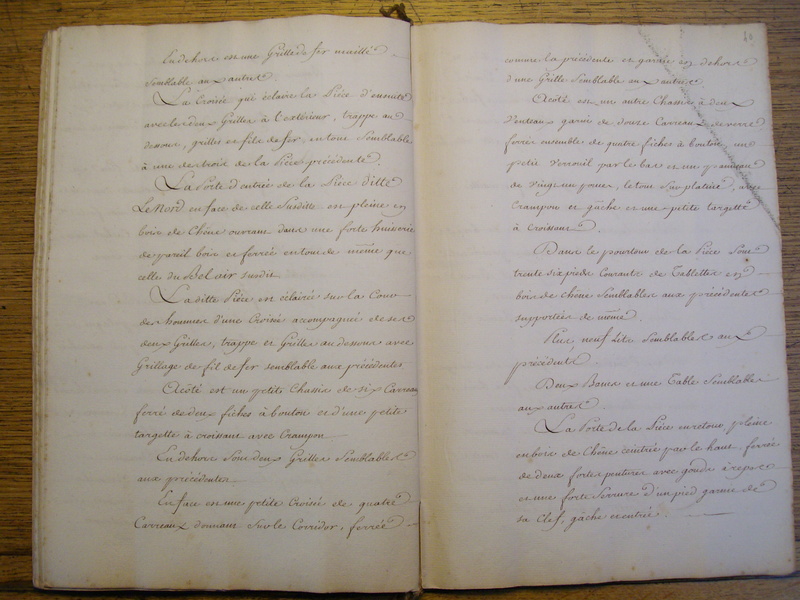 En dehors est une Grille de fer maillé
semblable aux autres.
La Croisée qui éclaire la Pièce d'ensuite
avec les deux Grilles à l'extérieur, trappe au
dessous, grilles et file de fer, en tout semblable
à une des trois de la Pièce précédente.
La Porte d'entrée de la Pièce ditte
Le Nord en face de celle susditte est pleine en
bois de Chêne ouvrant dans une forte huisserie
de pareil bois et ferrée en tout de même que
celle du Bel air susdit.
La ditte Pièce est éclairée sur la Cour
des hommes d'une Croisée accompagnée de ses
deux Grilles, trappe et Grilles au dessous avec
Grillage de fil de fer semblable aux précédentes
A côté est un petit Chassis de six Carreaux
ferré de deux fiches à bouton et d'une petite
targette à croissant avec Crampon
En dehors sont deux Grilles semblables
aux précédentes
En face est une petite Croisée de quatre
Carreaux donnant sur le Corridor, ferrée
60
comme la précédente et garnie en dehors
d'une Grille semblable aux autres
A côté est un autre Chassis à deux
Venteaux garni de douze Carreaux de verre
ferrés ensemble de quatre fiches à bouton, un
petit verrouil par le bas et un panneau
de vingt un pouces, le tout sur platine, avec
Crampon et gâche et une petite targette
à croissant.
Dans le pourtour de la Pièce sont
trente six pieds Courants de Tablettes en
bois de chêne semblables aux précédentes
supportées de même.
Plus neuf Lits semblables aux
précédents
Deux Bancs et une Table semblables
aux autres.
La Porte de la Pièce en retour, pleine
en bois de Chêne ceintrée par le haut, ferrée
de deux fortes pentures avec gonds à repos
et une forte serrure d'un pied garnie de
sa Clef, gâche et entrée.